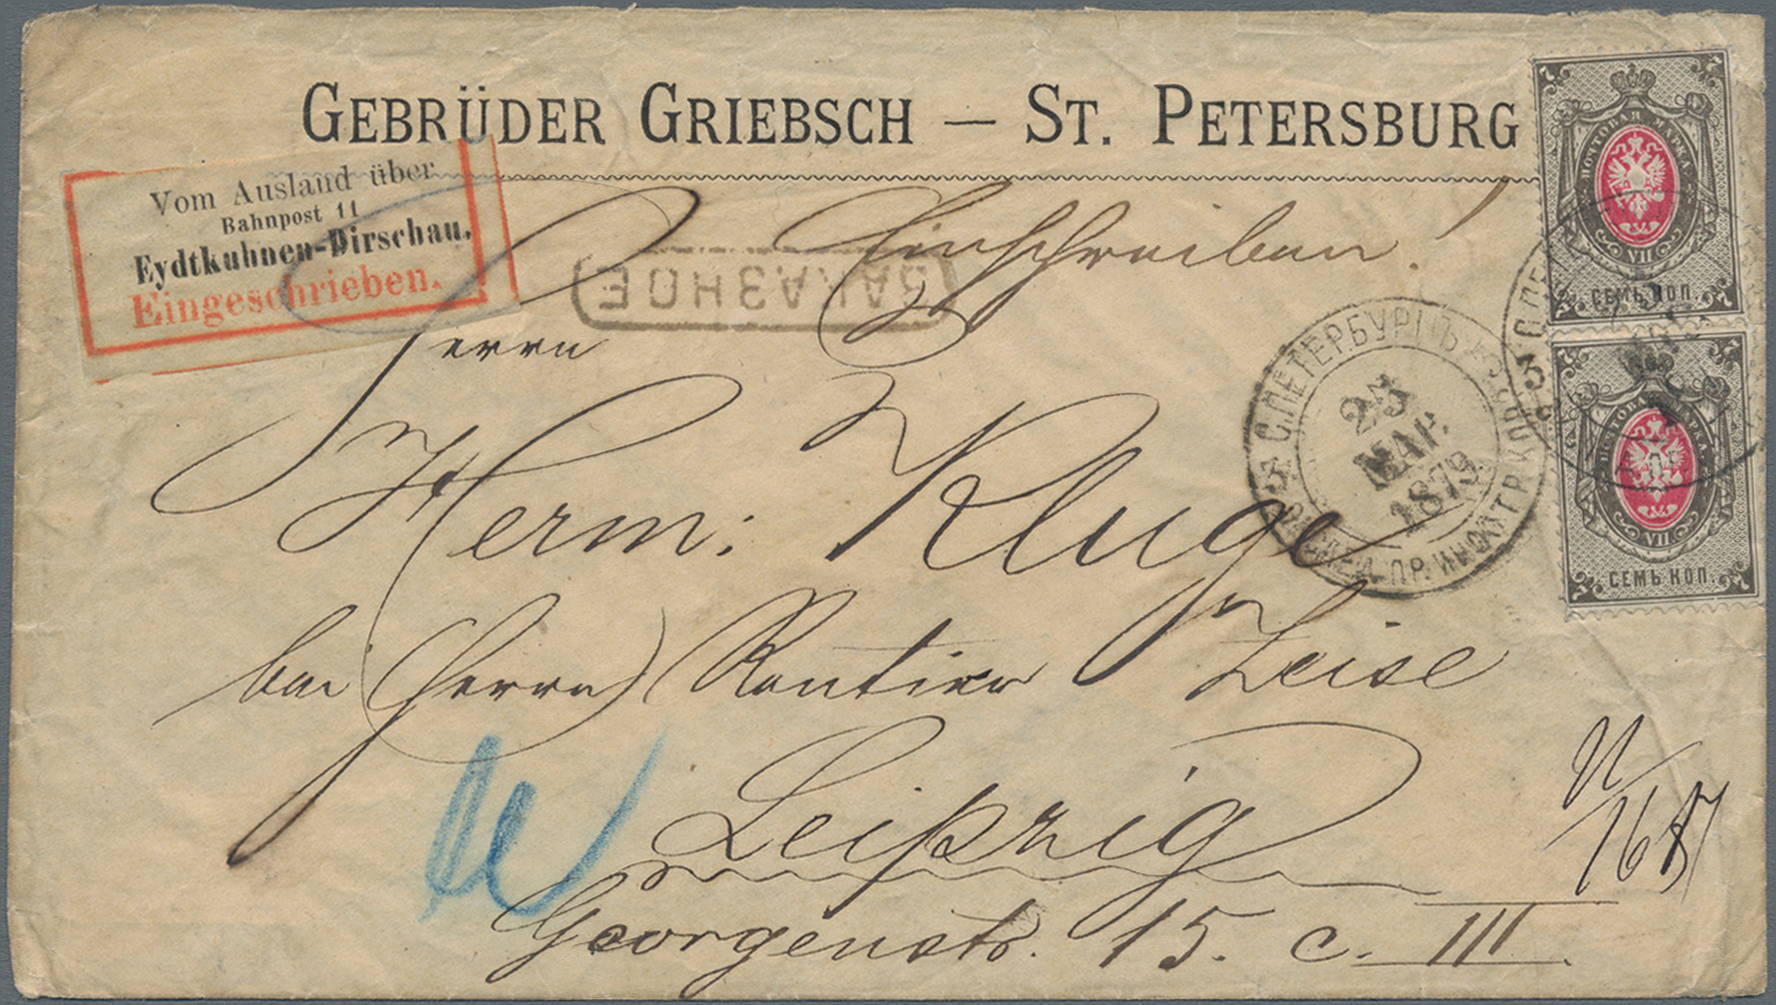 GEBRÜDER GRIEBSCH — ST. PETERSBURG
Vom Ausland über
Bahnpost 11
Eydtkuhnen-Dirschau.
Eingeschrieben.
Einschreiben!
ЗАКАЗНОЕ
Herrn
Herm: Kluge
bei Herrn Rentier Zeise
Leipzig
Georgenstr. 15. c. III.
N 1687
ПОЧТОВАЯ МАРКА
VII
СЕМЬ КОП.
ПОЧТОВАЯ МАРКА
VII
СЕМЬ КОП.
С.ПЕТЕРБУРГЪ
25
МАР.
1879